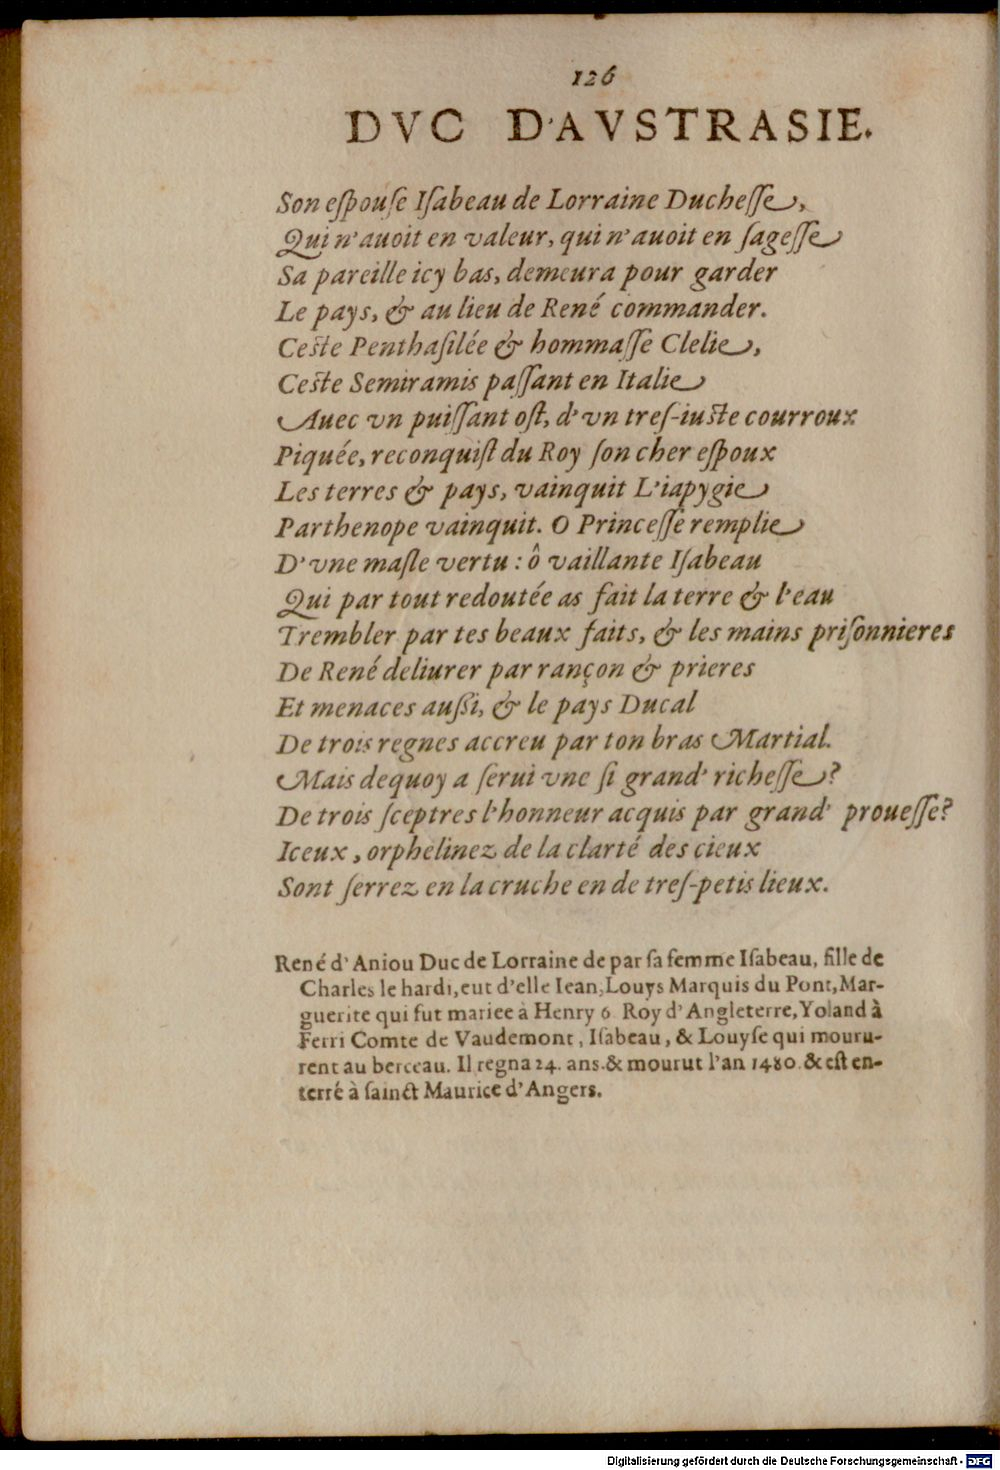 126
DVC D'AVSTRASIE.
Son eſpouſe Iſabeau de Lorraine Ducheſſe,
Qui n'auoit en valeur, qui n'auoit en ſageſſe
Sa pareille icy bas, demeura pour garder
Le pays, & au lieu de René commander.
Ceſte Penthaſilée & hommaſſe Clelie,
Ceſte Semiramis paſſant en Italie
Auec vn puiſſant oſt, d'vn treſ-iuſte courroux
Piquée, reconquiſt du Roy ſon cher eſpoux
Les terres & pays, vainquit L'iapygie
Parthenope vainquit. O Princeſſe remplie
D'vne maſle vertu : ô vaillante Iſabeau
Qui par tout redoutée as fait la terre & l'eau
Trembler par tes beaux faits, & les mains priſonnieres
De René deliurer par rançon & prieres
Et menaces auſſi, & le pays Ducal
De trois regnes accreu par ton bras Martial.
Mais dequoy a ſerui vne ſi grand' richeſſe?
De trois ſceptres l'honneur acquis par grand' proueſſe?
Iceux, orphelinez de la clarté des cieux
Sont ſerrez en la cruche en de treſ-petis lieux.
René d'Aniou Duc de Lorraine de par ſa femme Iſabeau, fille de
Charles le hardi, eut d'elle Iean, Louys Marquis du Pont, Mar-
guerite qui fut mariee à Henry 6 Roy d'Angleterre, Yoland à
Ferri Comte de Vaudemont, Iſabeau, & Louyſe qui mouru-
rent au berceau. Il regna 24. ans. & mourut l'an 1480. & eſt en-
terré à ſainct Maurice d'Angers.
Digitalisierung gefördert durch die Deutsche Forschungsgemeinschaft - DFG